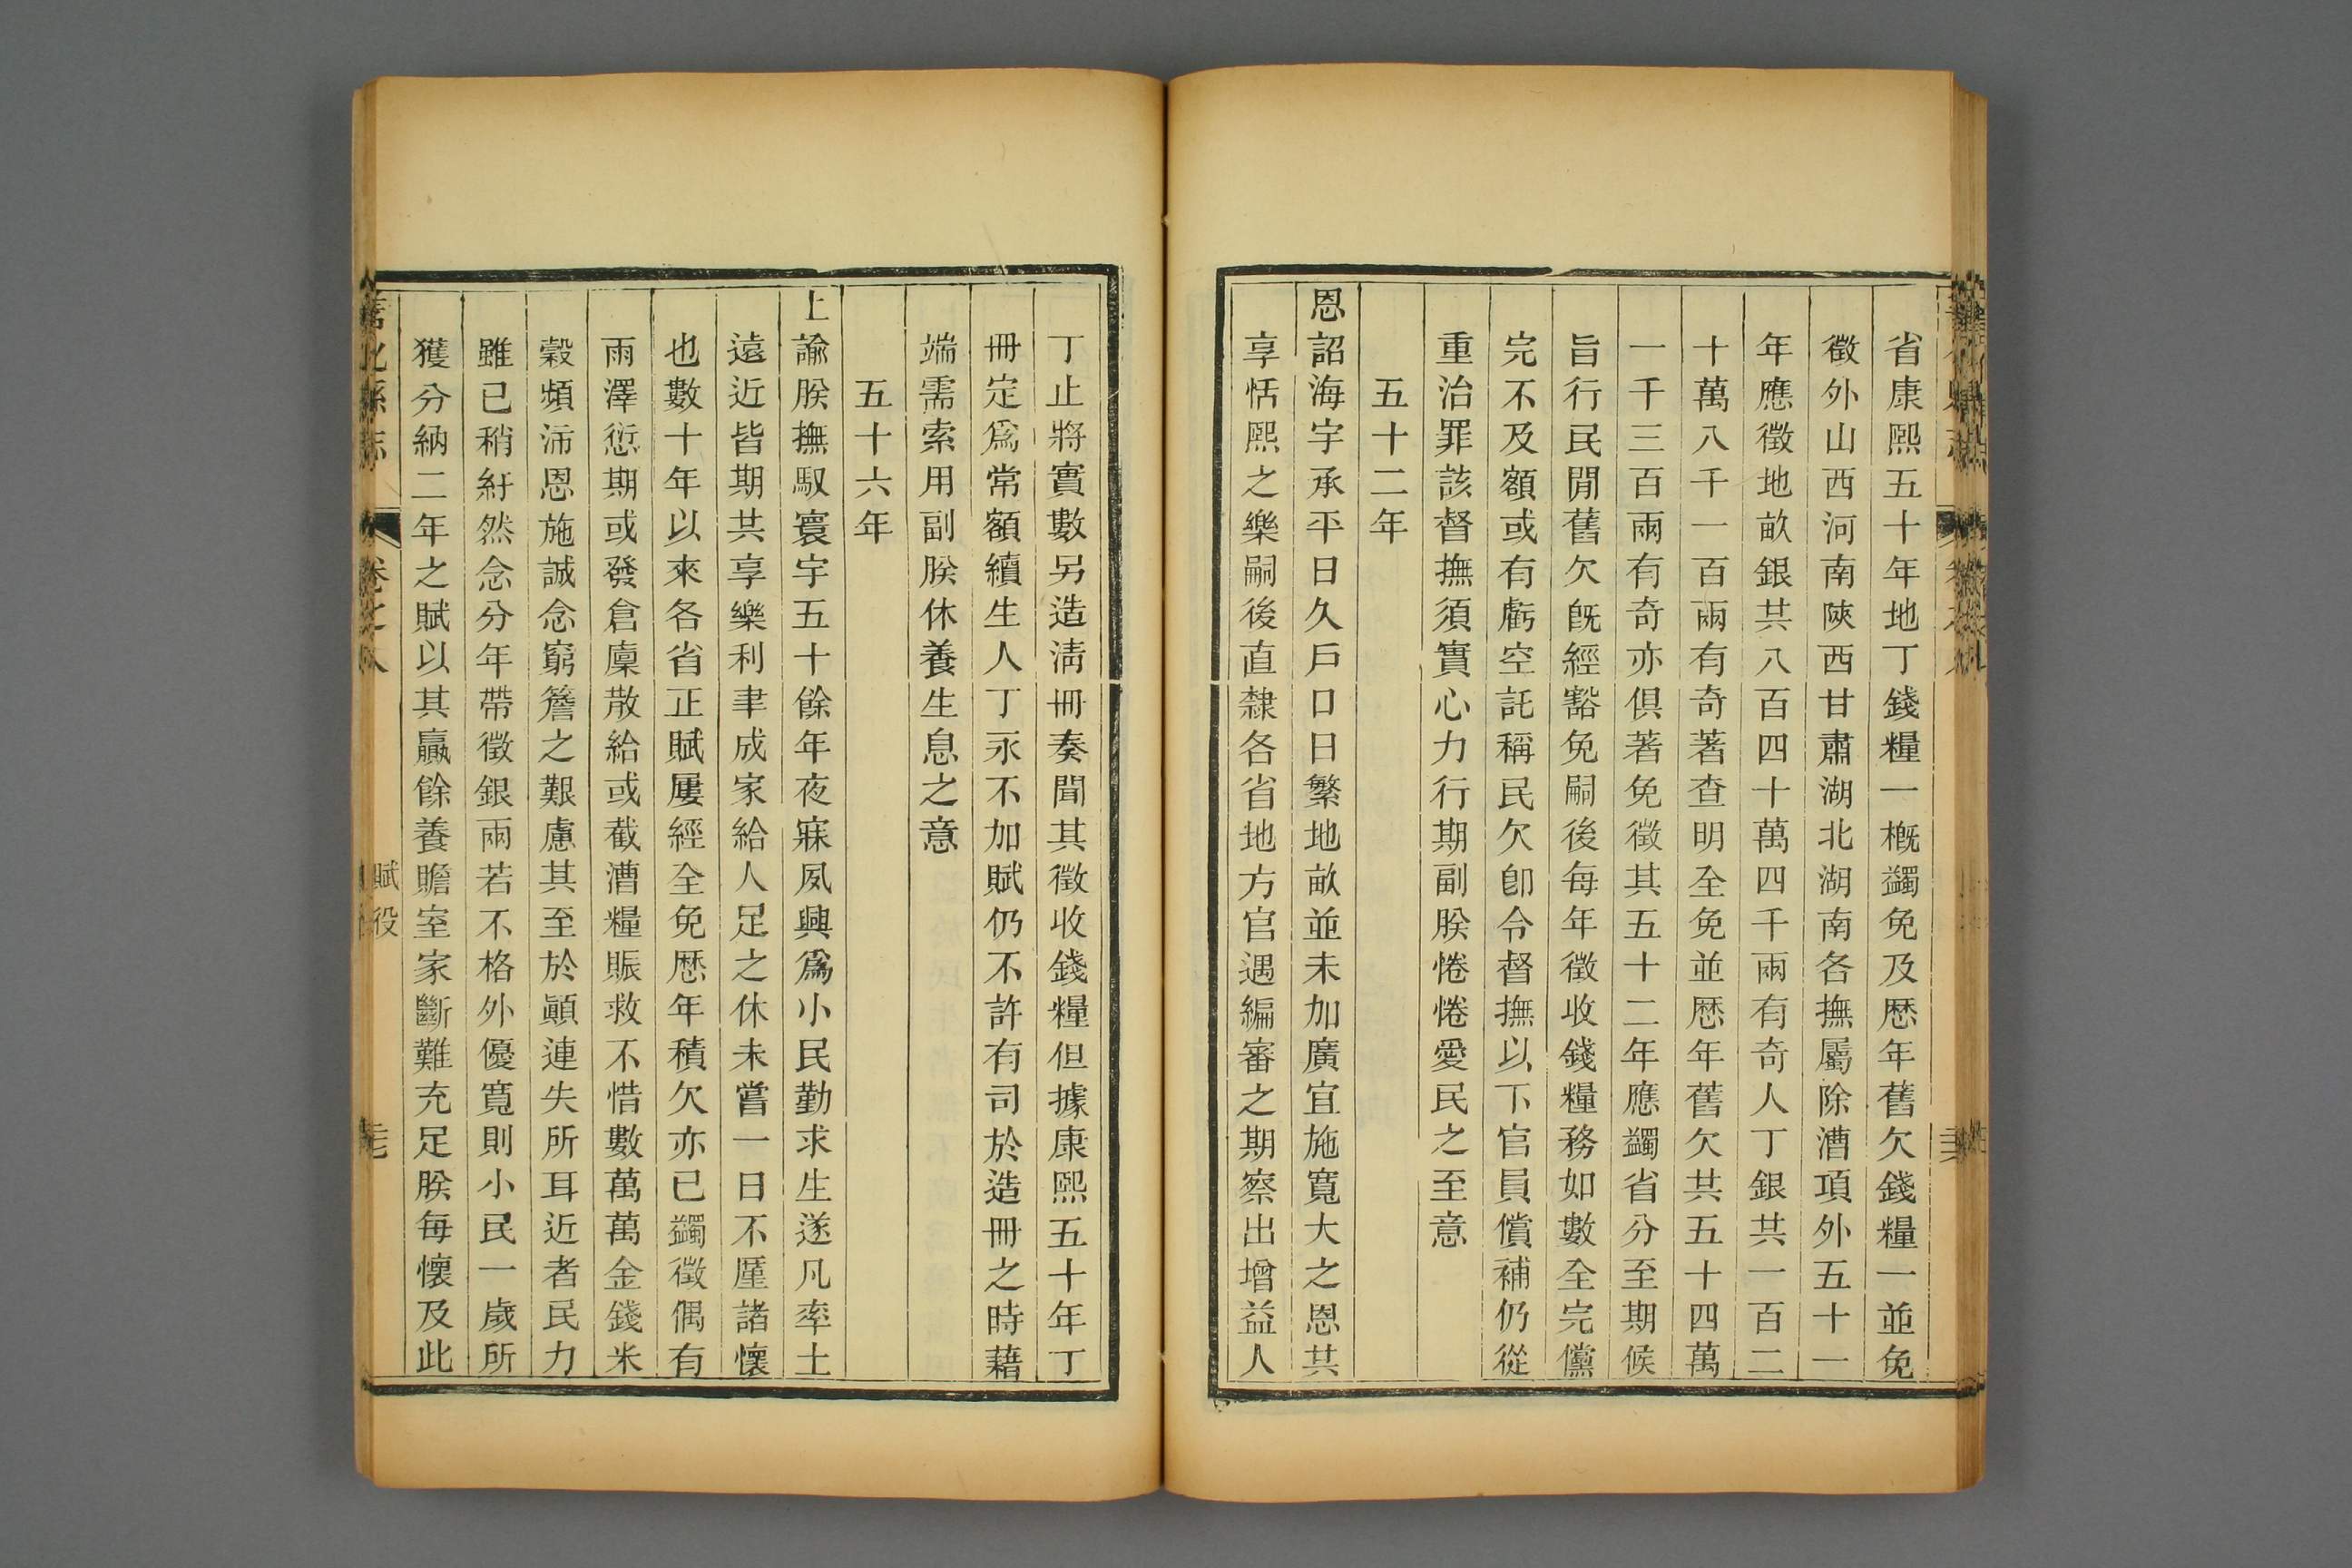 省康熙五十年地丁錢糧一槪蠲免及歷年舊欠錢糧一並免
徵外山西河南陝西甘肅湖北湖南各撫屬除漕項外五十一
年應徵地畝銀共八百四十萬四千兩有奇人丁銀共一百二
十萬八千一百兩有奇著查明全免並歷年舊欠共五十四萬
一千三百兩有奇亦俱著免徵其五十二年應蠲省分至期候
旨行民閒舊欠旣經豁免嗣後每年徵收錢糧務如數全完儻
完不及額或有虧空託稱民欠卽令督撫以下官員償補仍從
重治罪該督撫須實心力行期副朕惓惓愛民之至意
五十二年
恩詔海宇承平日久戶口日繁地畝並未加廣宜施寬大之恩共
享恬熙之樂嗣後直隸各省地方官遇編審之期察出增益人
丁止將實數另造淸冊奏聞其徵收錢糧但據康熙五十年丁
冊定爲常額續生人丁永不加賦仍不許有司於造冊之時藉
端需索用副朕休養生息之意
五十六年
上諭朕撫馭寰宇五十餘年夜寐夙興爲小民勤求生遂凡率土
遠近皆期共享樂利聿成家給人足之休未嘗一日不厪諸懷
也數十年以來各省正賦屢經全免歷年積欠亦已蠲徵偶有
雨澤愆期或發倉廩散給或截漕糧賑救不惜數萬萬金錢米
穀頻沛恩施誠念窮簷之艱慮其至於顚連失所耳近者民力
雖已稍紓然念分年帶徵銀兩若不格外優寬則小民一歲所
獲分納二年之賦以其贏餘養贍室家斷難充足朕每懷及此
卷之八
賦役